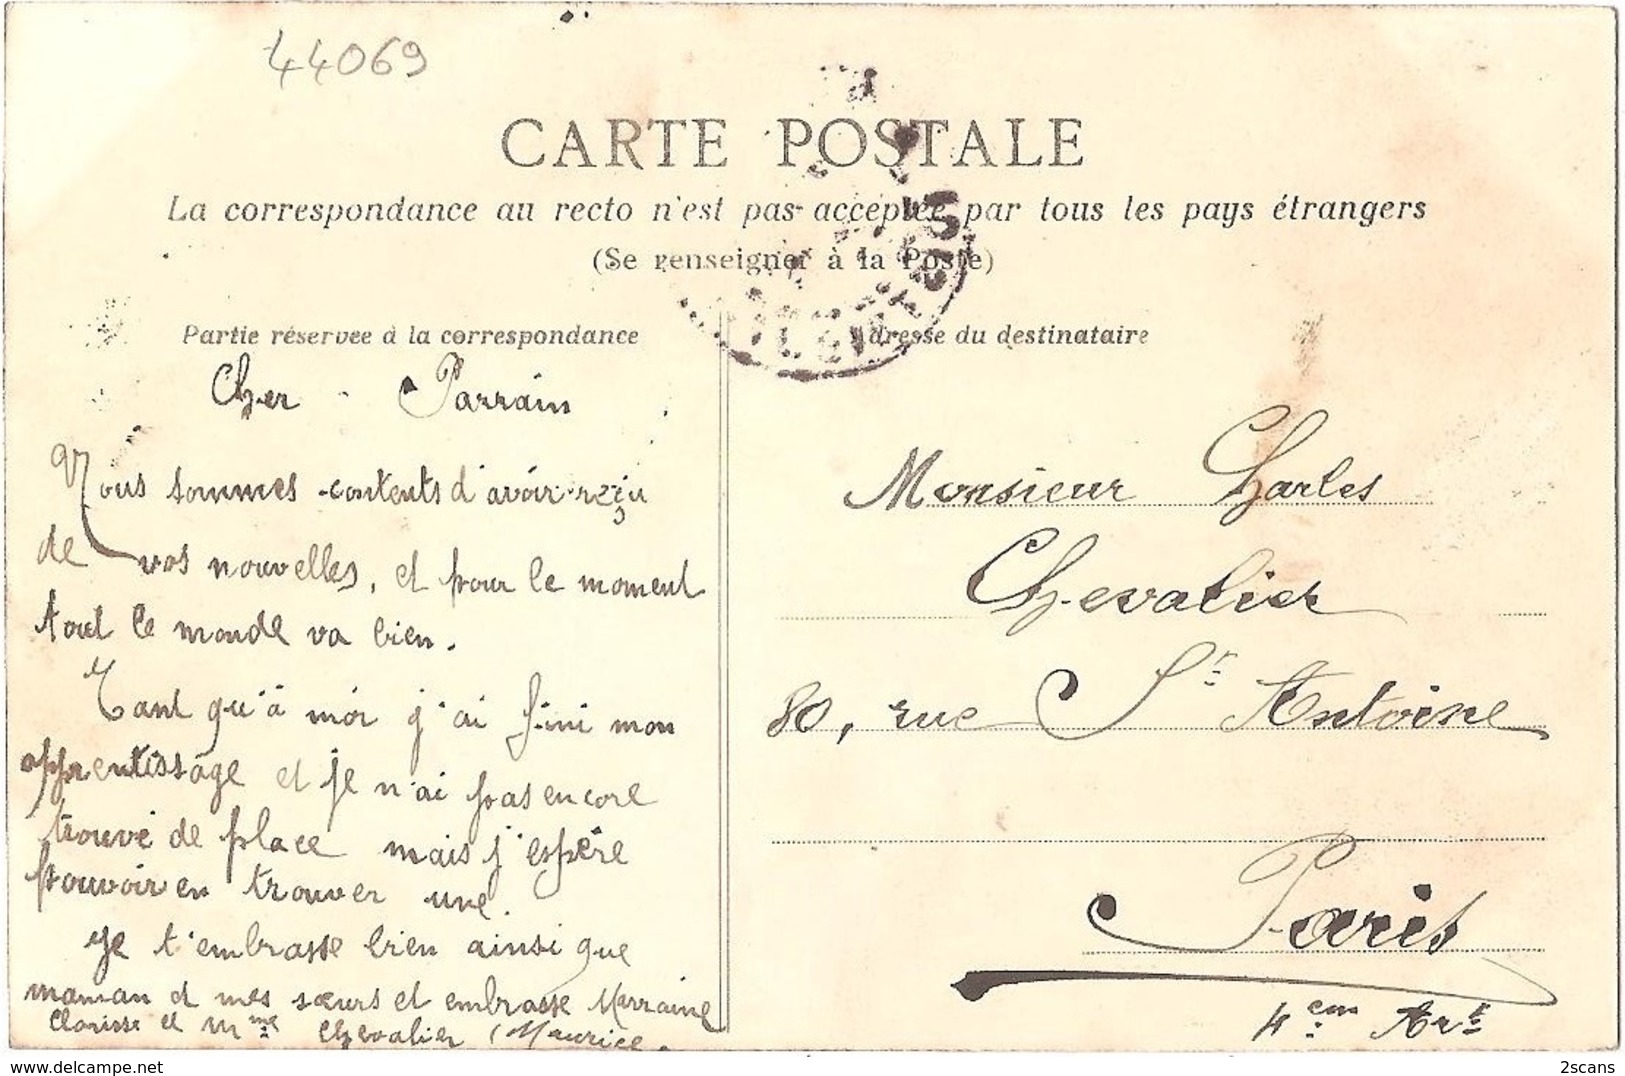 44069
CARTE POSTALE
La correspondance au recto n'est pas acceptée par tous les pays étrangers
(Se renseigner à la Poste)
Partie réservée à la correspondance
Cher Parrain
Nous sommes contents d'avoir reçu
de vos nouvelles, et pour le moment
tout le monde va bien.
Tant qu'à moi j'ai fini mon
apprentissage et je n'ai pas encore
trouvé de place mais j'espère
pouvoir en trouver une.
Je t'embrasse bien ainsi que
maman et mes sœurs et embrasse Marraine
Clarisse et Mme Chevalier Maurice.
Adresse du destinataire
Monsieur Charles
Chevalier
80, rue St Antoine
Paris
4em Art
www.delcampe.net
2scans